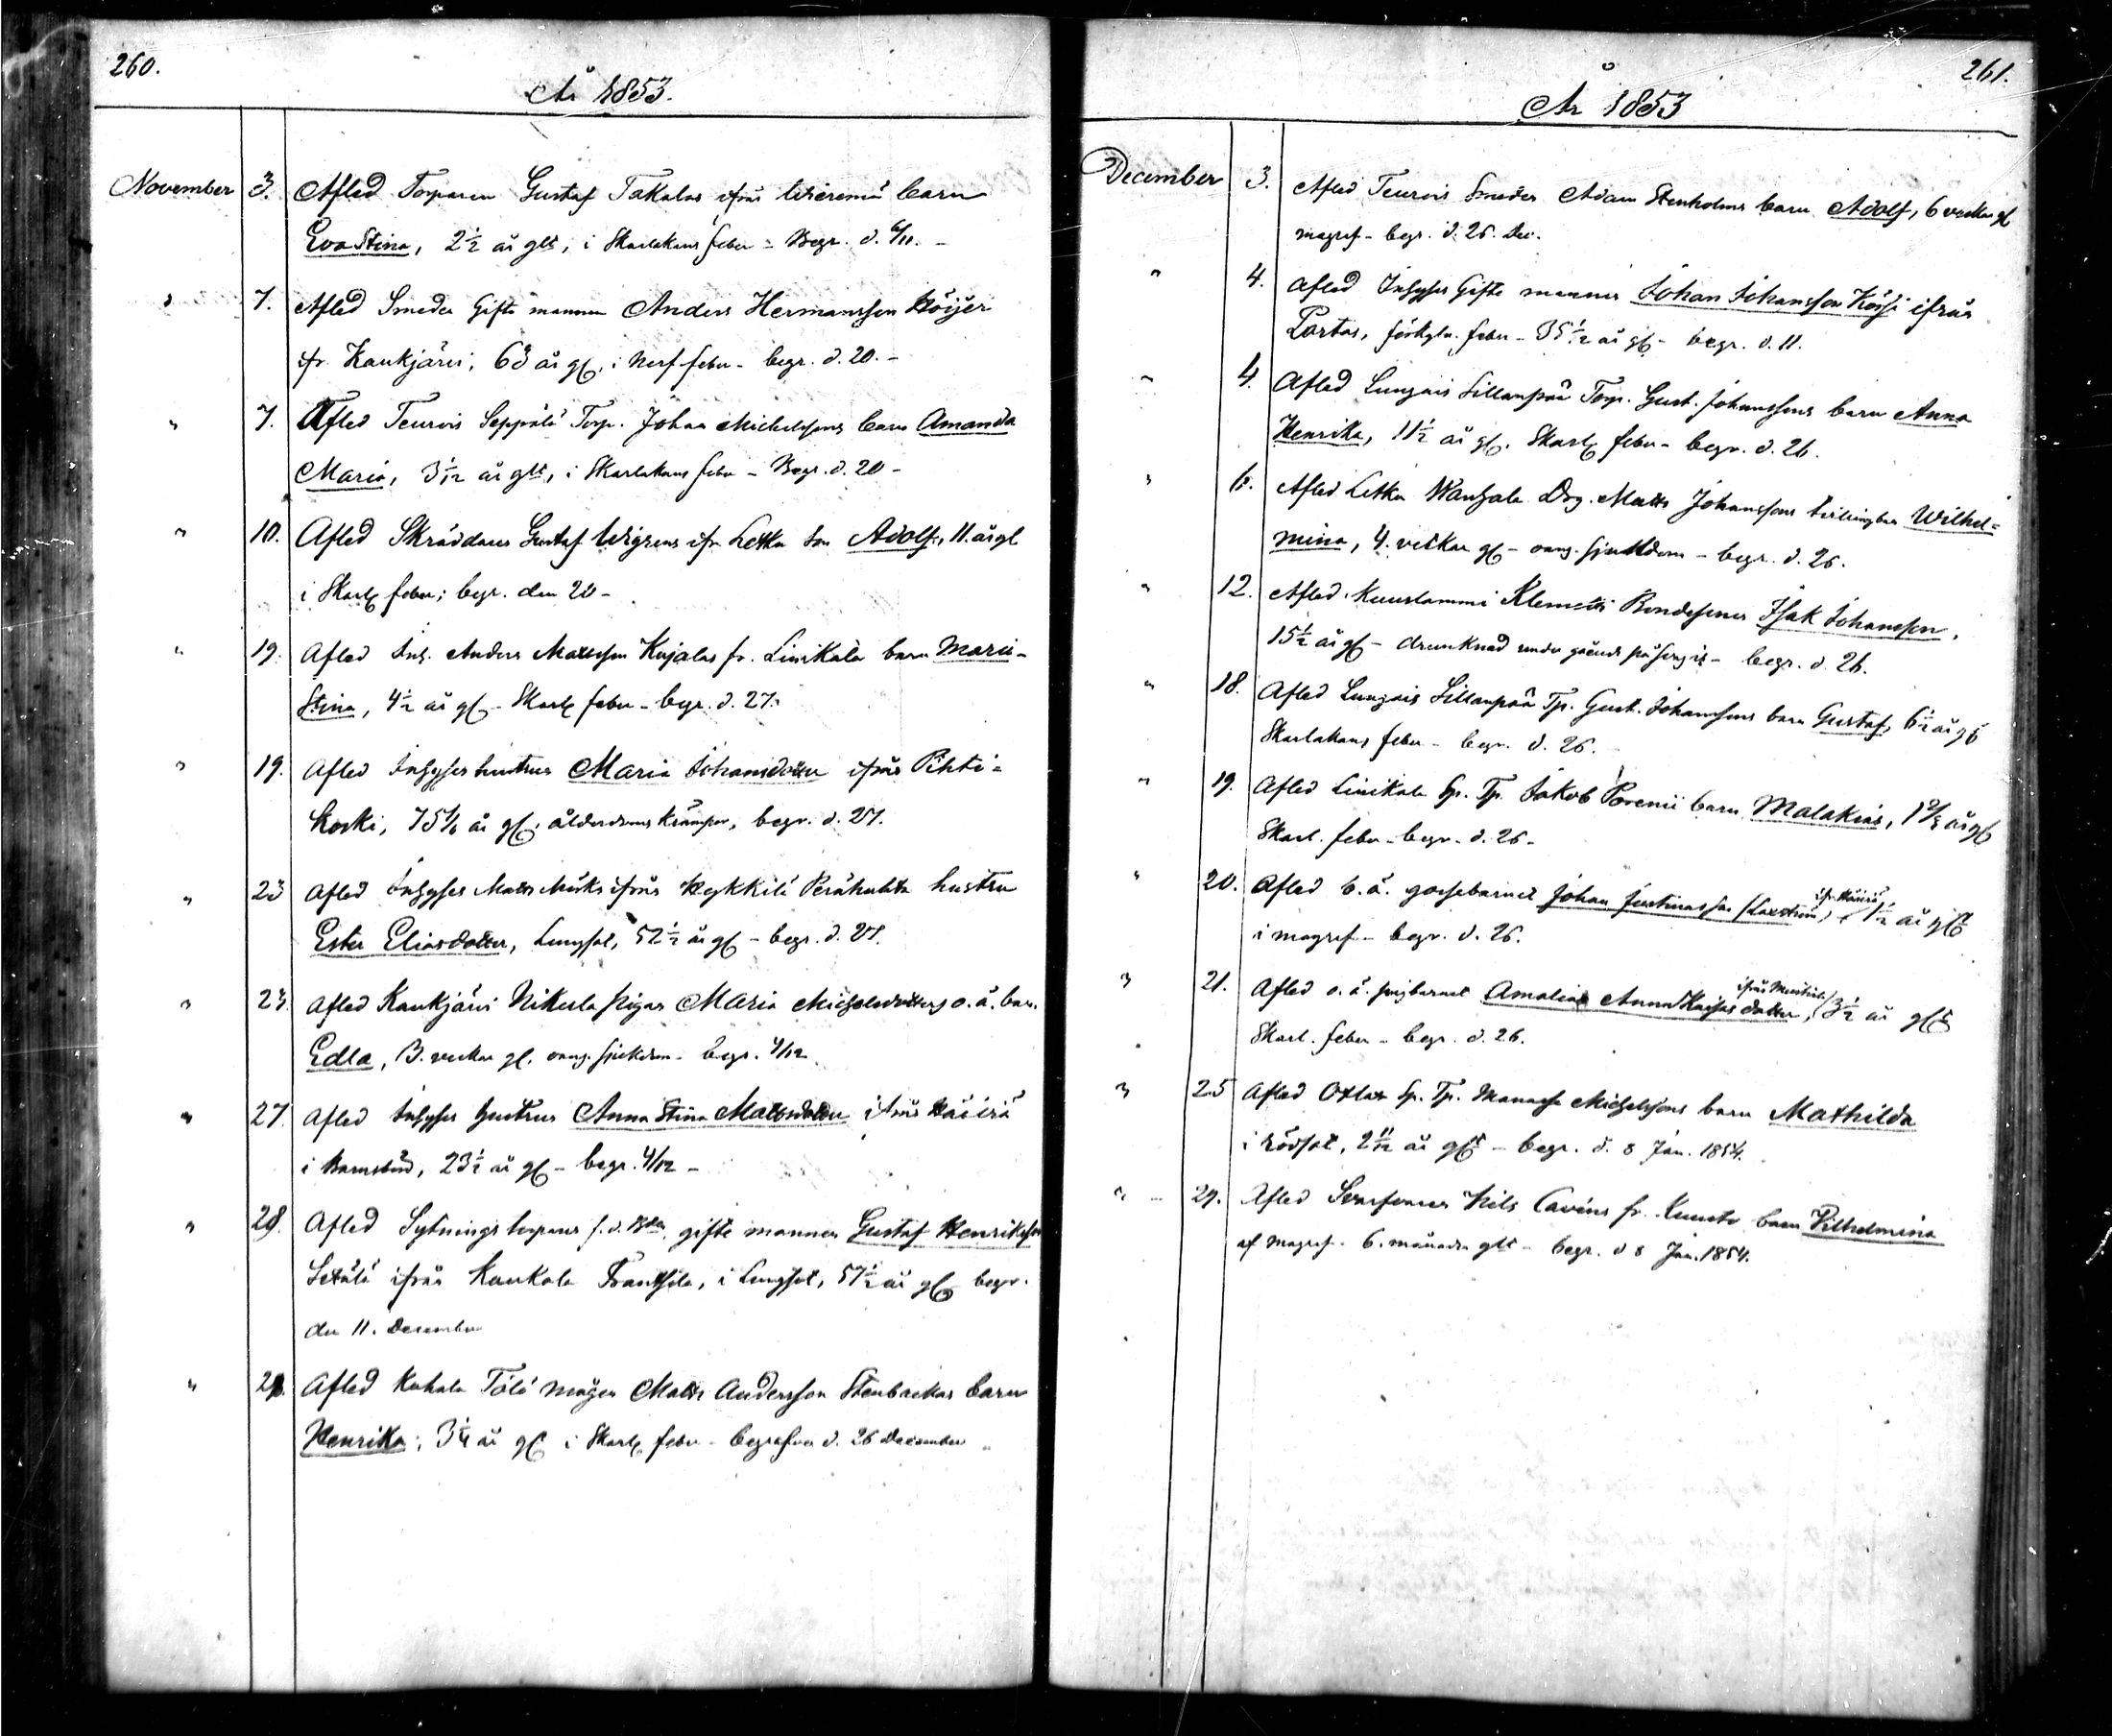 260.
År 1853.
November 3. Afled Torparen Gustaf Takalas ifrån Wieremä barn
Eva Stina, 2½ år glt, i Skarlakans feber - Begr. d. 6/11. -
" 7. Afled Smeden Gifte mannen Anders Hermansson Höijer
ifr. Kaukjärvi, 63 år gl, i Nerf feber - begr. d. 20. -
" 7. Afled Teurois Seppälä Torp. Johan Michelssons barn Amanda
Maria, 3½ år glt, i Skarlakans feber - Begr. d. 20 -
" 10. Afled Skräddaren Gustaf Wigrens ifr. Letku son Adolf, 11. år gl
i Skarl. feber; begr. den 20 -
" 19. Afled Inh. Anders Mattsson Kujalas fr. Linikala barn Maria-
Stina, 4½ år gl - Skarl. feber - begr. d. 27.
" 19. Afled Inhyses hustrun Maria Johansdotter ifrån Pihti=
koski, 75 år gl, ålderdoms krämpor, begr. d. 27.
" 23 Afled Inhyses Matts ifrån Rykkilä Perähuhta hustru
Ester Eliasdotter, Lungsot, 52½ år gl - begr. d. 27.
" 23. Afled Kaukjärvi Nikula pigan Maria Michelsdotters o. ä. barn
Edla, 3. veckor gl. oang. sjukdom - begr. 4/12
" 27. Afled Inhyses hustrun Anna Stina Mattsdotter ifrån Räiäiä
i Barnsbörd, 23½ år gl - begr. 4/12 -
" 28. Afled Sytnings torparen f. d. gifte mannen Gustaf Henriksson
Setälä ifrån Kaukola Frantsila, i Lungsot, 57½ år gl begr.
den 11. December
" Afled Kuhala Tölö mågen Matts Andersson Stenbackas barn
Henrika, 3¼ år gl i Skarl. feber - begrafven d. 26 December
261.
År 1853
December 3. Afled Teurois Smeden Adam Stenholms barn Adolf, 6 veckor gl
magref - begr. d. 26. Dec.
" 4. Afled Inhyses Gifte mannen Johan Johansson ifrån
Portas, feber - 35½ år gl - begr. d. 11.
" 4. Afled Lunjais Sillanpää Torp. Gust. Johanssons barn Anna
Henrika, 11½ år gl. Skarl. feber - begr. d. 26.
" 6. Afled Letku Wanhala Drg. Matts Johanssons tvillingbarn Wilhel=
mina, 4. veckor gl - oang. sjukdom - begr. d. 26.
" 12. Afled Kuuslammi Klemetti Bondesonen Isak Johansson,
15½ år gl - drunknad under gående på svag is - begr. d. 26.
" 18. Afled Lunjais Sillanpää Tp. Gust. Johanssons barn Gustaf, 6½ år gl
Skarlakans feber - begr. d. 26.
" 19. Afled Linikala Sp. Tp. Jakob barn Malakias, 1 år gl
Skarl. feber - begr. d. 26 -
" 20. Afled o. ä. gossebarnet Johan Justinasson (Laxström) ifr. 1½ år glt
i magref - begr. d. 26.
" 21. Afled o. ä. pigbarnet Amalia Anna Kaisasdotter, ifrån 3½ år glt
Skarl. feber - begr. d. 26.
" 25 Afled Ojalan Sp. Tp. Manasse Michelssons barn Mathilda
i rödsot, 2 år glt - begr. d. 8 Jan. 1854.
" 29. Afled Nils Cavéns fr. Kuusto barn Vilhelmina
af magref. 6. månader glt - begr. d 8 Jan. 1854.